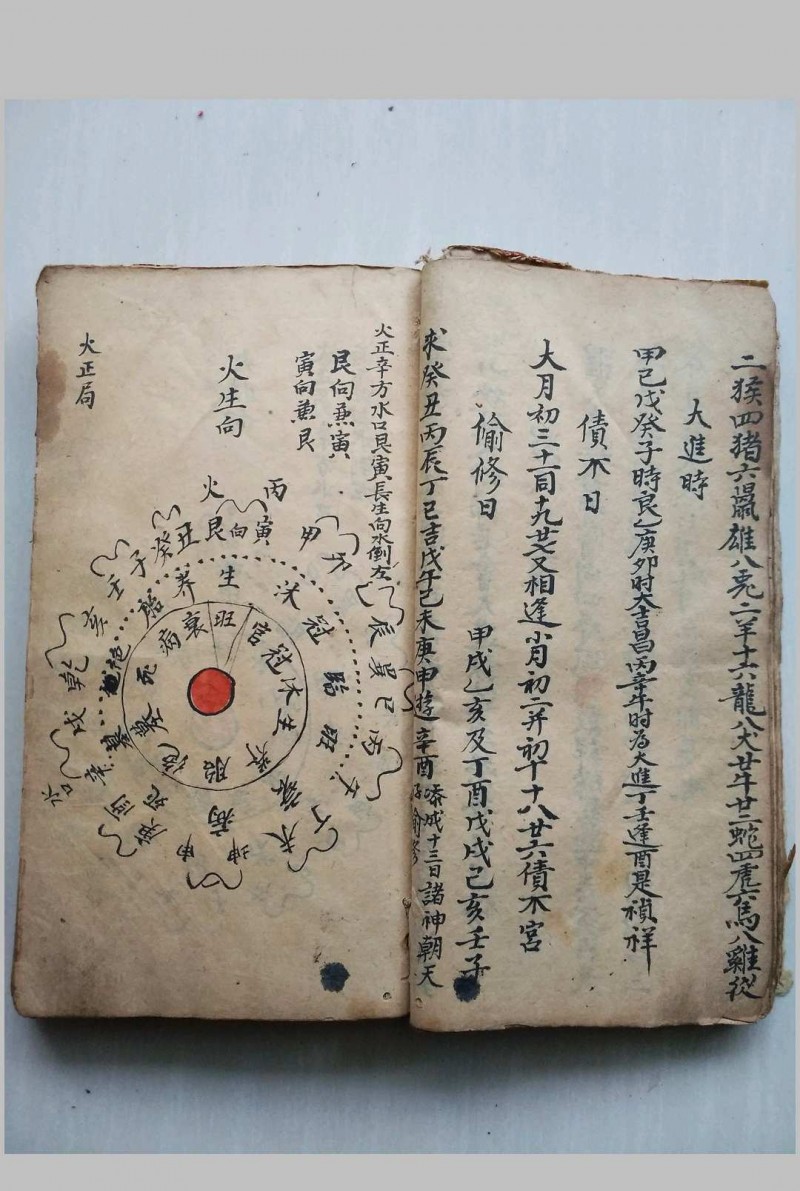 二猴四猪六鼠雄八兎二羊十六龍八犬廿牛廿二蛇四虎六馬八雞從
大進時
甲己戊癸子時良乙庚卯时大吉昌丙辛午时为大進丁壬逢酉是禎祥
債不日
大月初三十一同十九廿七又相逢小月初二并初十十八廿六債不宮
偷修日
甲戌乙亥及丁酉戊戌己亥壬子
求癸丑丙辰丁巳吉戊午己未庚申逰辛酉
添成十三日諸神朝天
好偷修
火正辛方水口艮寅長生向水倒左
艮向兼寅
寅向兼艮
火生向
火正局
火
丙
艮向寅
甲
乙
辰
巽
巳
丙
午
丁
未
坤
申
庚
酉
辛
戌
乾
壬
子
癸
丑
生
沐
冠
臨
旺
衰
病
死
墓
絕
胎
养
旺
衰
病
死
墓
絕
胎
养
生
沐
冠
官